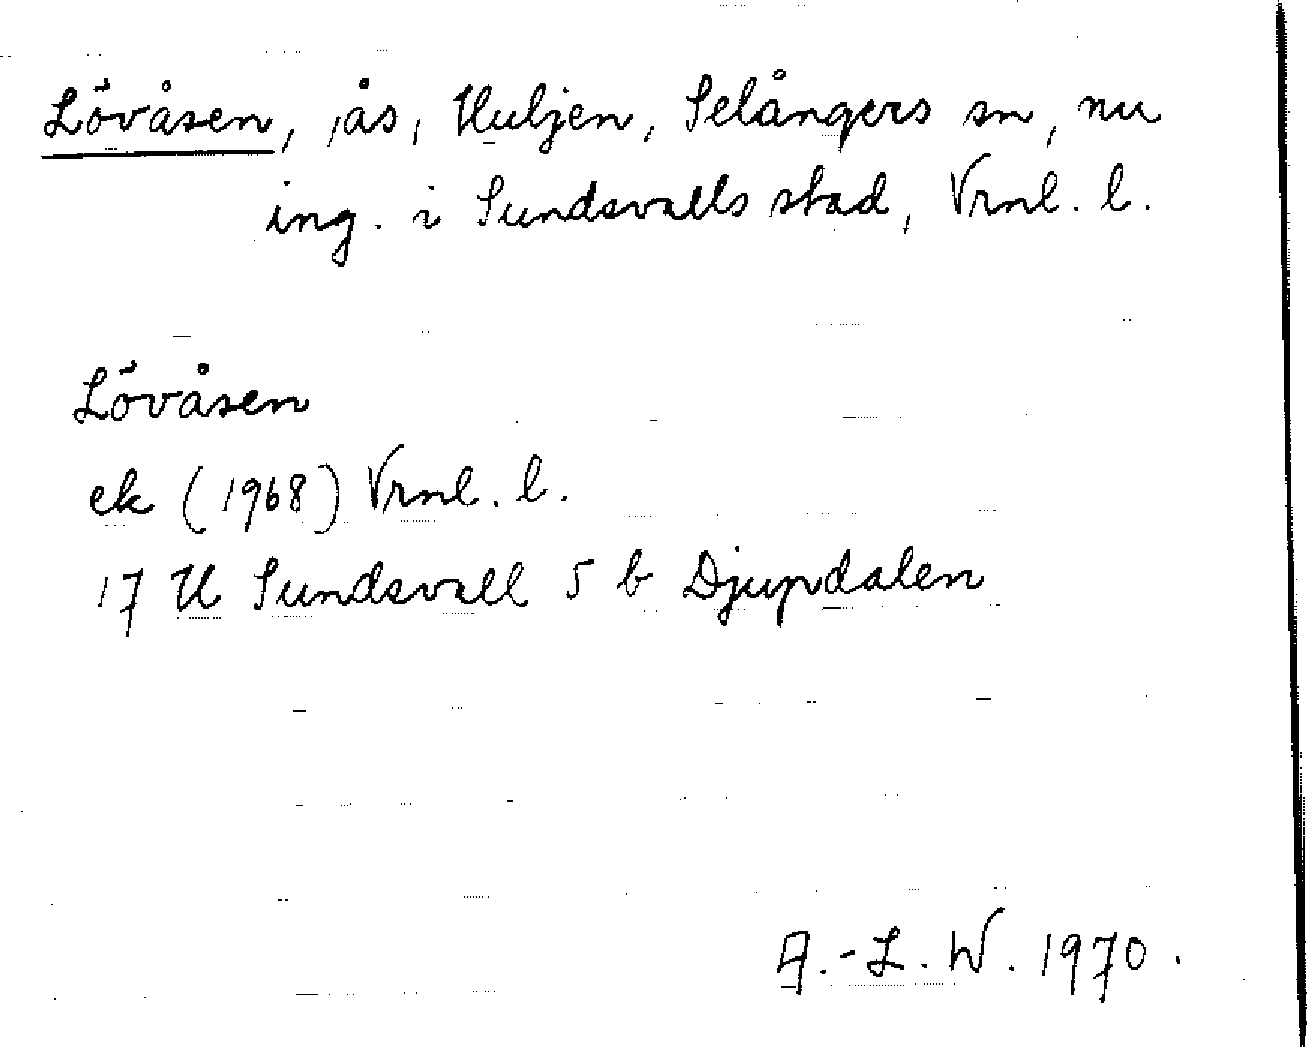 Lövåsen, ås, Huljen, Selångers sn, nu
ing. i Sundsvalls stad, Vrnl. l.
Lövåsen
ek (1968) Vrnl. l.
17 H Sundsvall 5 b Djupdalen
A.-L. W. 1970.